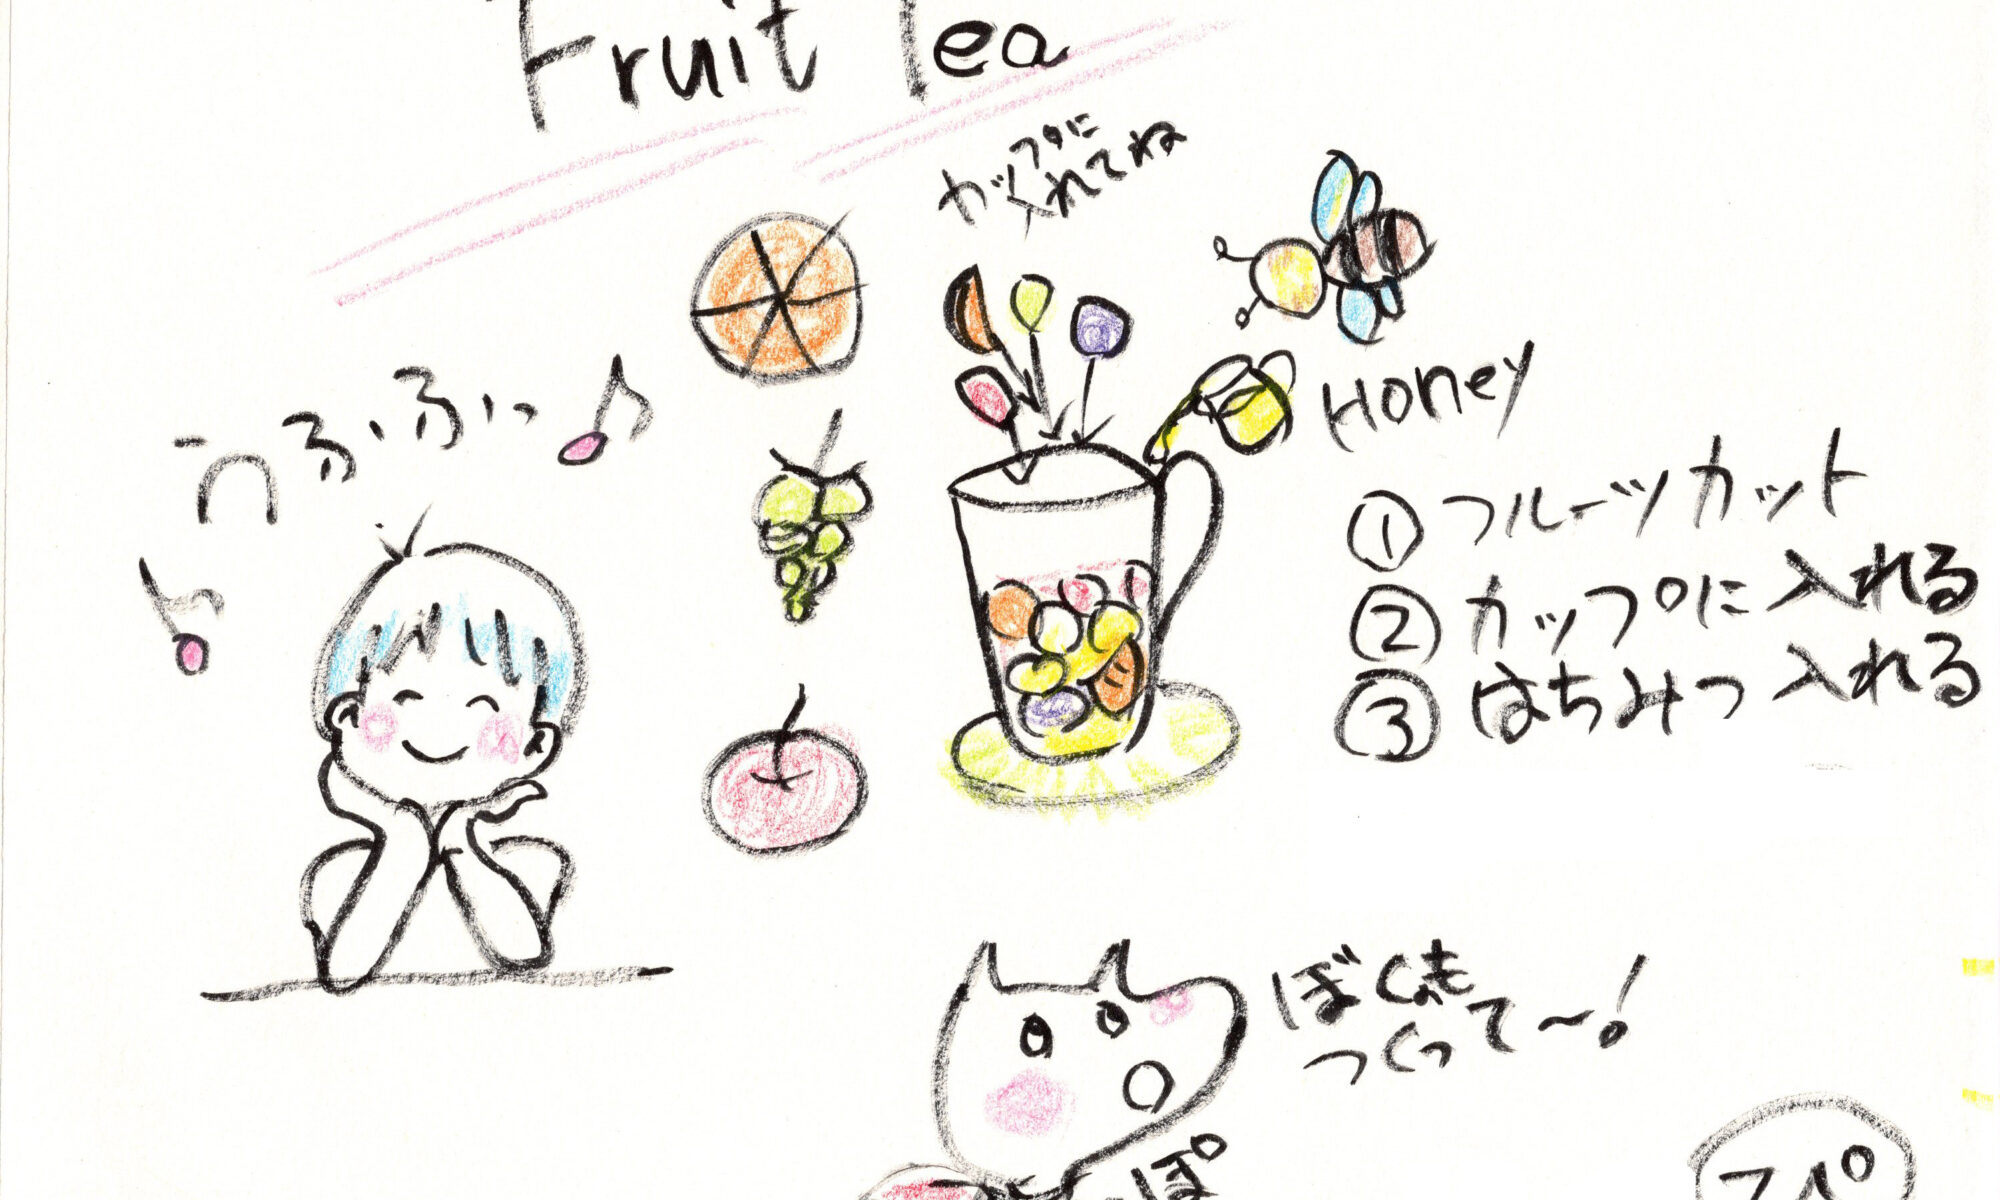 Fruit Tea
カップに
入れてね
Honey
うふふっ
① フルーツカット
② カップに入れる
③ はちみつ入れる
ぼくも
つくって〜!